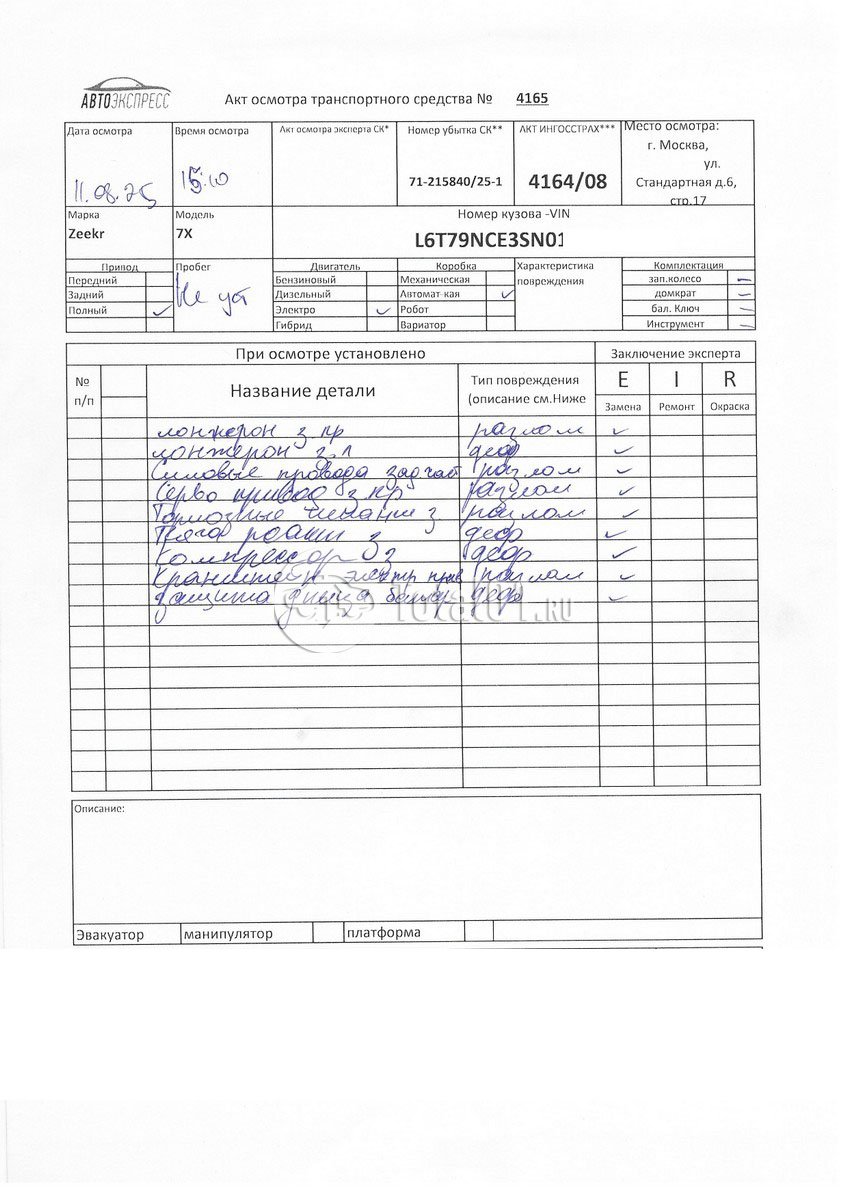 АВТОЭКСПРЕСС
Акт осмотра транспортного средства № 4165
Дата осмотра
11.08.25
Время осмотра
15:10
Акт осмотра эксперта СК*
Номер убытка СК**
71-215840/25-1
АКТ ИНГОССТРАХ***
4164/08
Место осмотра:
г. Москва,
ул.
Стандартная д.6,
стр.17
Марка
Zeekr
Модель
7X
Номер кузова -VIN
L6T79NCE3SN01
Привод
Передний
Задний
Полный
Пробег
Не уст
Двигатель
Бензиновый
Дизельный
Электро
Гибрид
Коробка
Механическая
Автомат-кая
Робот
Вариатор
Характеристика
повреждения
Комплектация
зап.колесо
домкрат
бал. Ключ
Инструмент
При осмотре установлено
Заключение эксперта
№
п/п
Название детали
Тип повреждения
(описание см.Ниже
E I R
Замена Ремонт Окраска
лонжерон з пр разлом
лонжерон з.л деф
Силовые провода зад част разлом
Серво привод з пр разлом
Тормозные з разлом
Тяга з деф
Компрессор з деф
Кронштейн электр разлом
Защита днища батар деф
Total01.RU
Описание:
Эвакуатор манипулятор платформа